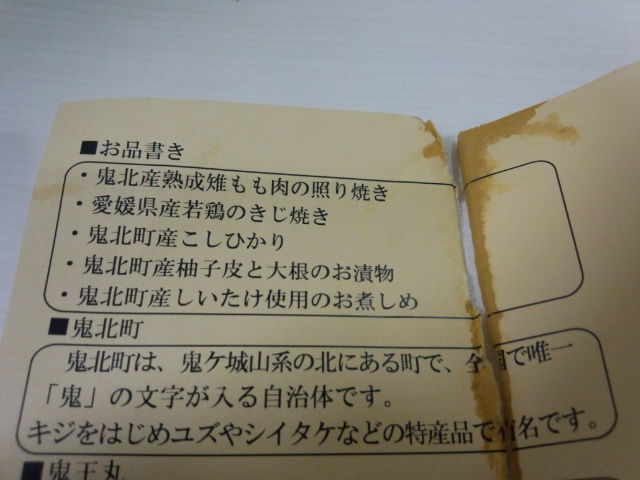 ■お品書き
・鬼北産熟成雉もも肉の照り焼き
・愛媛県産若鶏のきじ焼き
・鬼北町産こしひかり
・鬼北町産柚子皮と大根のお漬物
・鬼北町産しいたけ使用のお煮しめ
■鬼北町
鬼北町は、鬼ケ城山系の北にある町で、全国で唯一
「鬼」の文字が入る自治体です。
キジをはじめユズやシイタケなどの特産品で有名です。
■鬼王丸